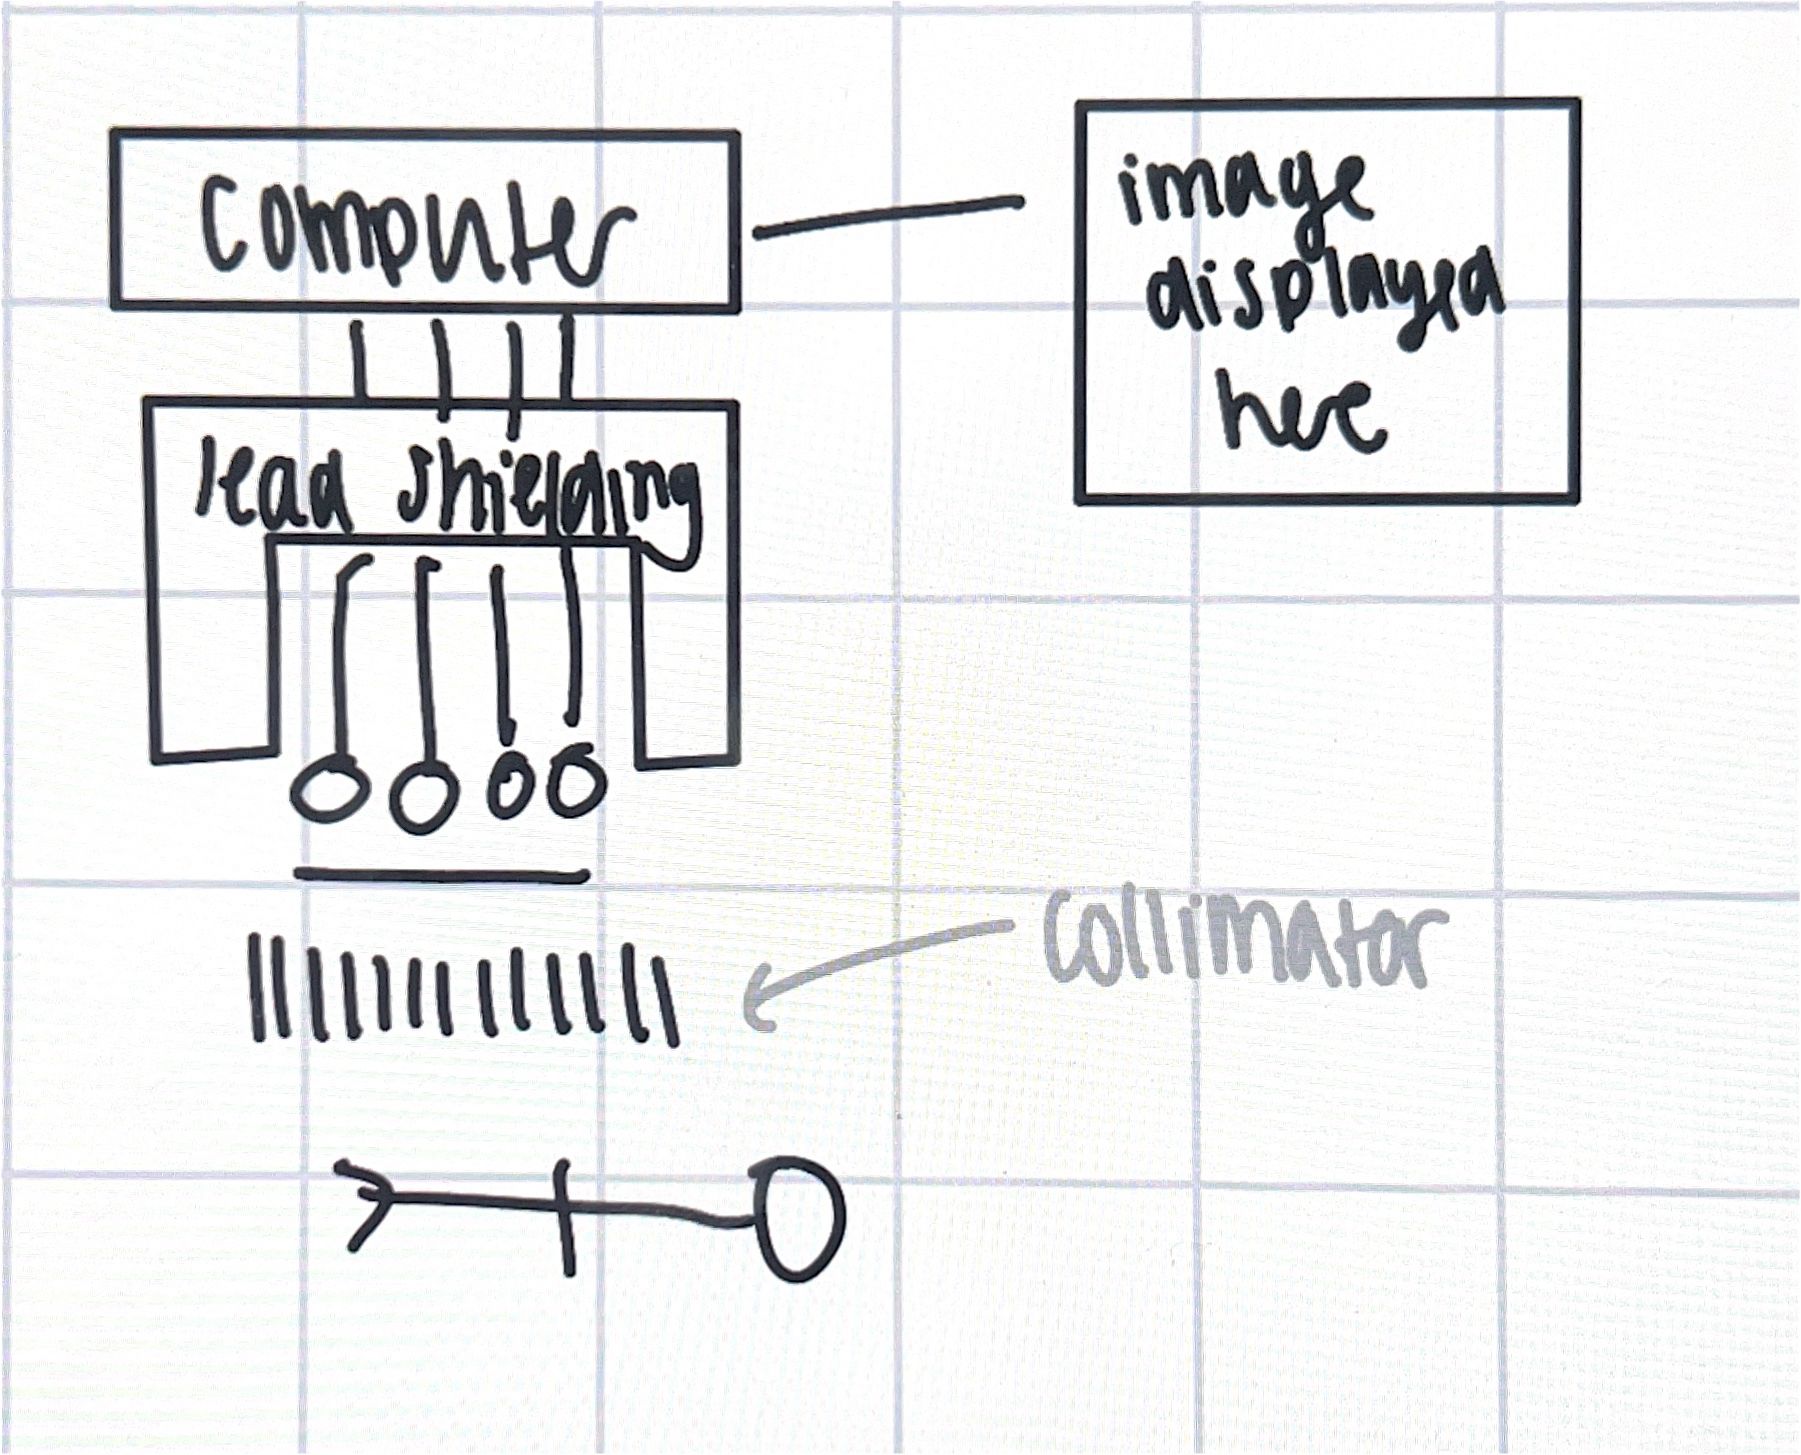 computer
image
displayed
here
lead shielding
collimator